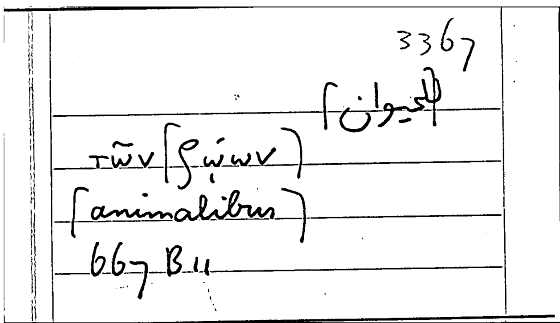 3367
[الحيوان]
τῶν [ζῴων]
[animalibus]
667 B 11